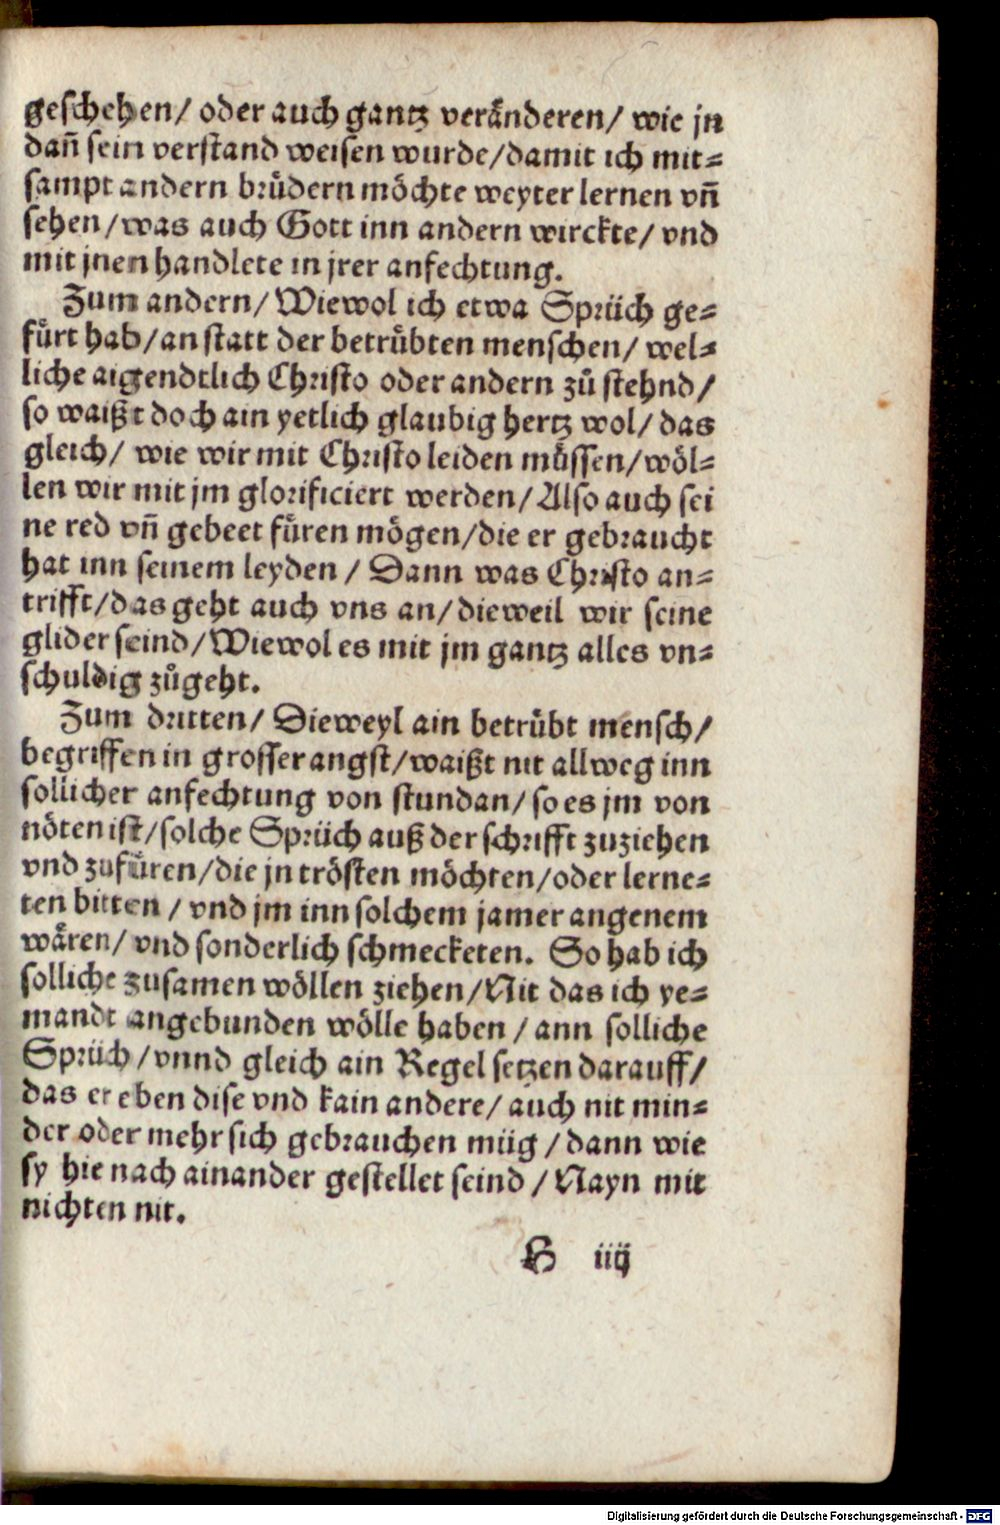 geschehen/ oder auch gantz veränderen/ wie jn
dañ sein verstand weisen wurde/damit ich mit-
sampt andern brůdern möchte weyter lernen vñ
sehen/was auch Gott inn andern wirckte/ vnd
mit jnen handlete in jrer anfechtung.
Zum andern/ Wiewol ich etwa Sprüch ge-
fůrt hab/an statt der betrůbten menschen/ wel-
liche aigendtlich Christo oder andern zů stehnd/
so waißt doch ain yetlich glaubig hertz wol/ das
gleich/ wie wir mit Christo leiden můssen/wöl-
len wir mit jm glorificiert werden/Also auch sei
ne red vñ gebeet fůren mögen/die er gebraucht
hat inn seinem leyden / Dann was Christo an-
trifft/das geht auch vns an/dieweil wir seine
glider seind/Wiewol es mit jm gantz alles vn-
schuldig zůgeht.
Zum dritten/ Dieweyl ain betrůbt mensch/
begriffen in grosser angst/waißt nit allweg inn
sollicher anfechtung von stundan/so es jm von
nöten ist/solche Sprüch auß der schrifft zuziehen
vnd zufüren/die jn trösten möchten/oder lerne-
ten bitten / vnd jm inn solchem jamer angenem
wären/ vnd sonderlich schmecketen. So hab ich
solliche zusamen wöllen ziehen/Nit das ich ye-
mandt angebunden wölle haben / ann solliche
Sprüch /vnnd gleich ain Regel setzen darauff/
das er eben dise vnd kain andere/ auch nit min-
der oder mehr sich gebrauchen müg / dann wie
sy hie nach ainander gestellet seind / Nayn mit
nichten nit.
B iiij
Digitalisierung gefördert durch die Deutsche Forschungsgemeinschaft - DFG